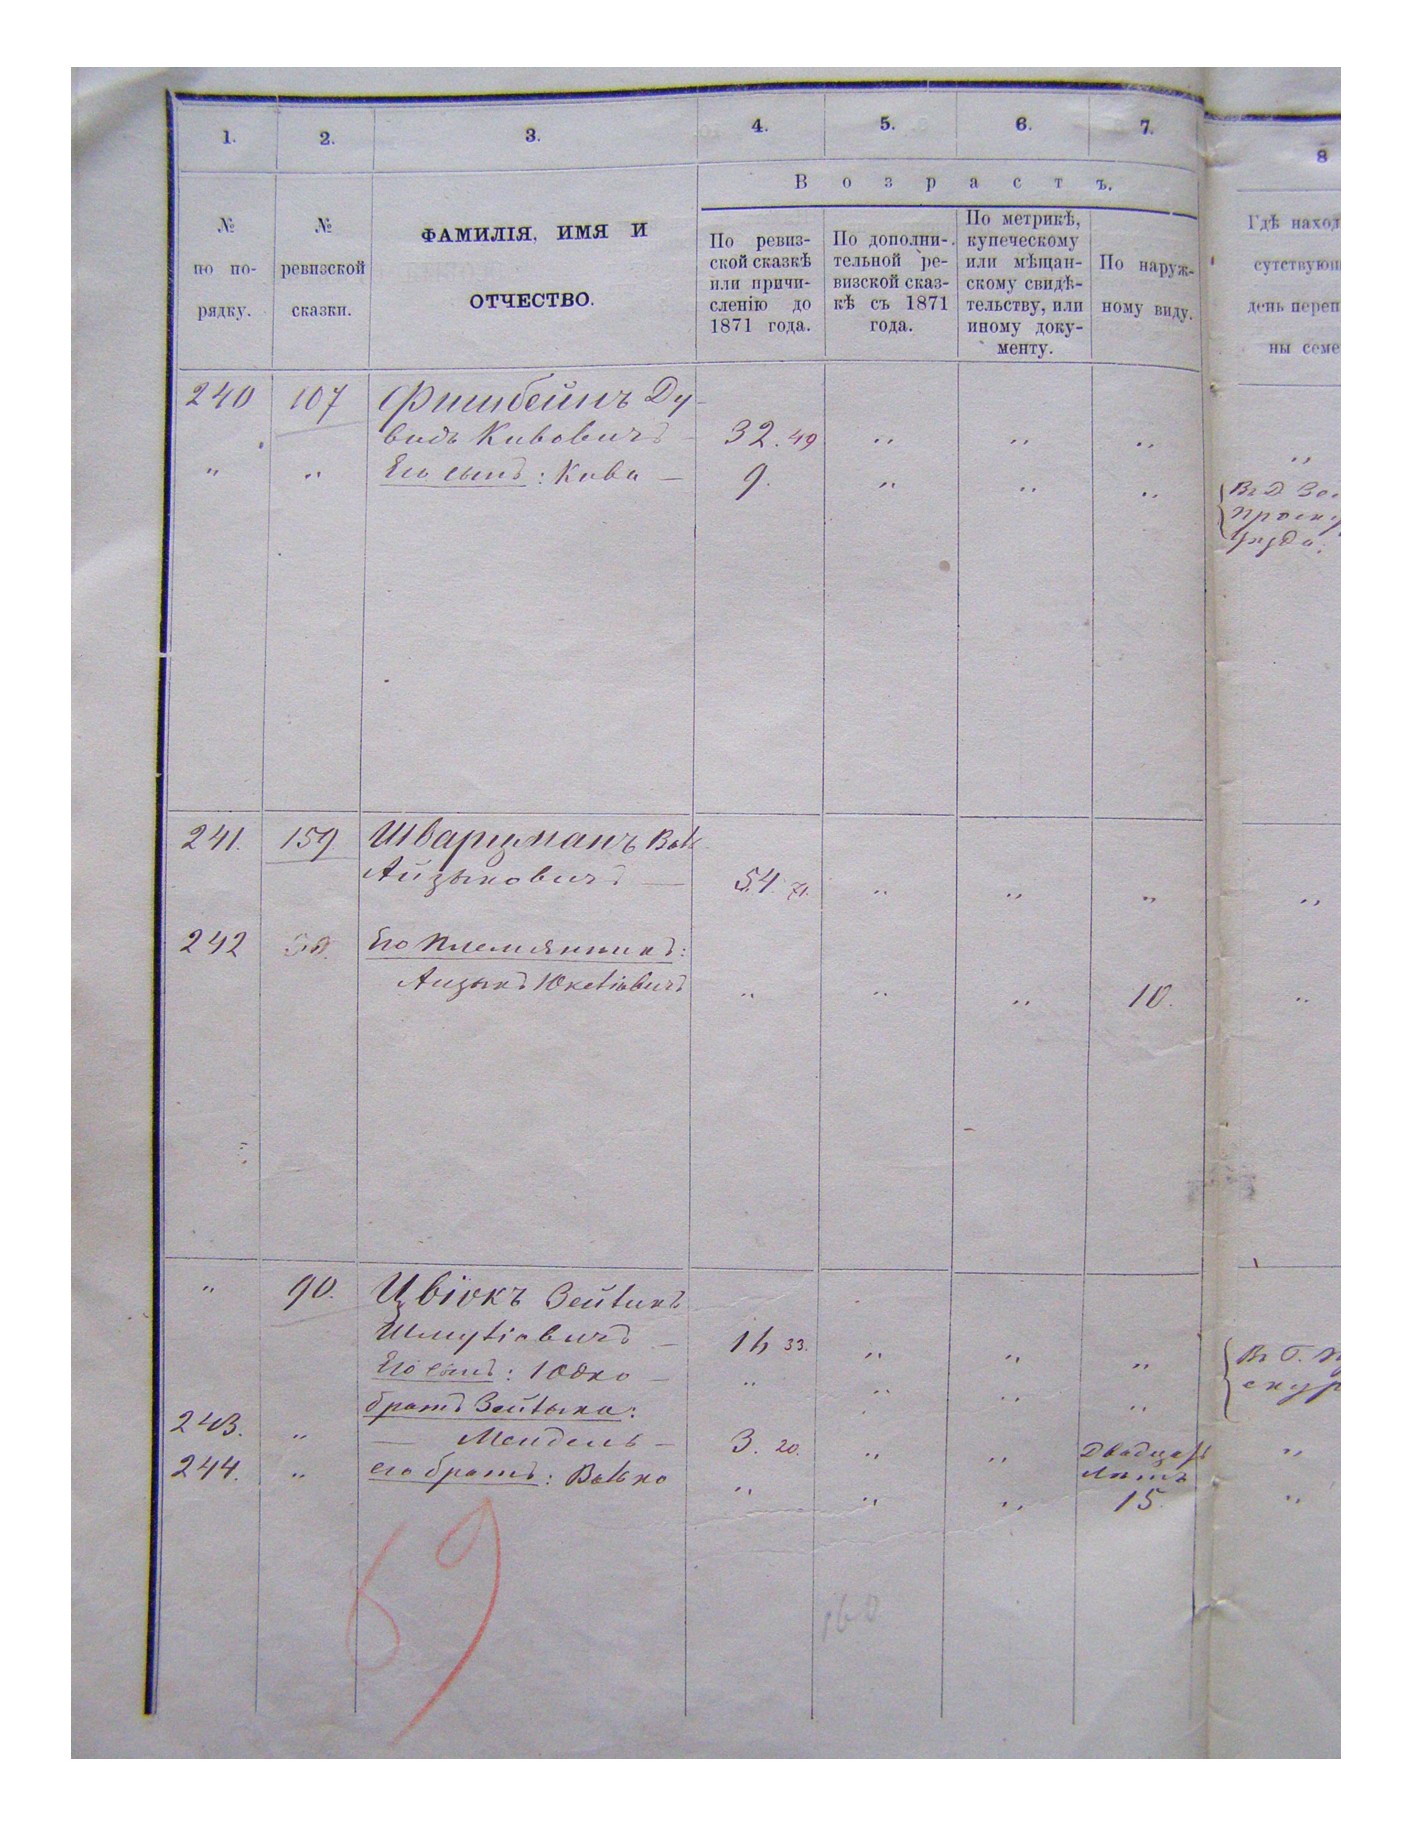 1. 2. 3. 4. 5. 6. 7. 8
Возрастъ.
№ по по-рядку.
№ ревизской сказки.
ФАМИЛІЯ, ИМЯ И
ОТЧЕСТВО.
По ревиз-
ской сказкѣ
или причи-
сленію до
1871 года.
По дополни-
тельной ре-
визской сказ-
кѣ съ 1871
года.
По метрикѣ,
купеческому
или мѣщан-
скому свидѣ-
тельству, или
иному доку-
менту.
По наруж-
ному виду.
Гдѣ наход
сутствующ
день переп
ны семе
240 107 Фишбейнъ Ду-
видъ Кивовичъ — 32. 49 " " " "
" " Его сынъ: Кива — 9. " " "
Въ Д.
Проск
уѣзда.
241. 159 Шварцманъ Волъ
Айзыковичъ — 54. 71. " " " "
242 Его племянникъ:
Айзыкъ " " " 10. "
" 90. Цвіокъ Зейликъ
Шмулiовичъ — 16 33. " " "
Его сынъ: Юдко — " " " "
Въ Г. П
скур
братъ Зейлика:
243. " — Мендель — 3. 20. " " Двадцать "
лѣтъ
244. " его братъ: Волько " " " 15. "
69
160